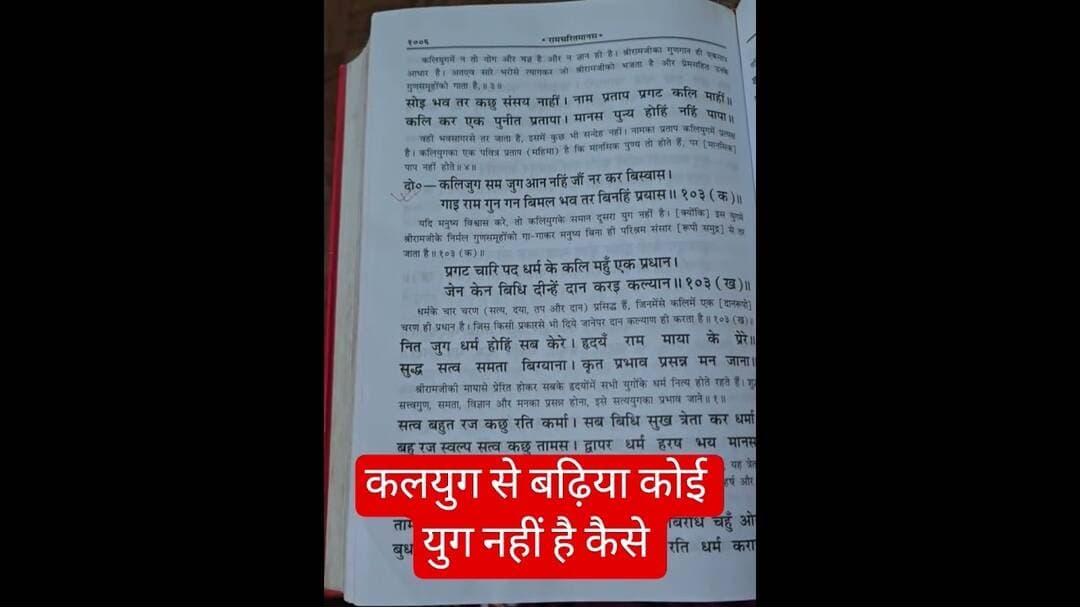 १००६
* रामचरितमानस *
कलियुगमें न तो योग और यज्ञ है और न ज्ञान ही है। श्रीरामजीका गुणगान ही एकमात्र
आधार है। अतएव सारे भरोसे त्यागकर जो श्रीरामजीको भजता है और प्रेमसहित उनके
गुणसमूहोंको गाता है,॥३॥
सोइ भव तर कछु संसय नाहीं। नाम प्रताप प्रगट कलि माहीं॥
कलि कर एक पुनीत प्रतापा। मानस पुन्य होहिं नहिं पापा॥
वही भवसागरसे तर जाता है, इसमें कुछ भी सन्देह नहीं। नामका प्रताप कलियुगमें प्रत्यक्ष
है। कलियुगका एक पवित्र प्रताप (महिमा) है कि मानसिक पुण्य तो होते हैं, पर [मानसिक]
पाप नहीं होते॥४॥
दो०—कलिजुग सम जुग आन नहिं जौं नर कर बिस्वास।
गाइ राम गुन गन बिमल भव तर बिनहिं प्रयास॥१०३(क)॥
यदि मनुष्य विश्वास करे, तो कलियुगके समान दूसरा युग नहीं है। [क्योंकि] इस युगमें
श्रीरामजीके निर्मल गुणसमूहोंको गा-गाकर मनुष्य बिना ही परिश्रम संसार [रूपी समुद्र] से तर
जाता है॥१०३(क)॥
प्रगट चारि पद धर्म के कलि महुँ एक प्रधान।
जेन केन बिधि दीन्हें दान करइ कल्यान॥१०३(ख)॥
धर्मके चार चरण (सत्य, दया, तप और दान) प्रसिद्ध हैं, जिनमेंसे कलिमें एक [दानरूपी]
चरण ही प्रधान है। जिस किसी प्रकारसे भी दिये जानेपर दान कल्याण ही करता है॥१०३(ख)॥
नित जुग धर्म होहिं सब केरे। हृदयँ राम माया के प्रेरे॥
सुद्ध सत्व समता बिग्याना। कृत प्रभाव प्रसन्न मन जाना॥
श्रीरामजीकी मायासे प्रेरित होकर सबके हृदयोंमें सभी युगोंके धर्म नित्य होते रहते हैं।
सत्त्वगुण, समता, विज्ञान और मनका प्रसन्न होना, इसे सत्ययुगका प्रभाव जाने॥१॥
सत्व बहुत रज कछु रति कर्मा। सब बिधि सुख त्रेता कर धर्मा
बहु रज स्वल्प सत्व कछु तामस। द्वापर धर्म हरष भय मानस
यह
और
कलयुग से बढ़िया कोई
युग नहीं है कैसे
चहुँ ओ
रति धर्म करा